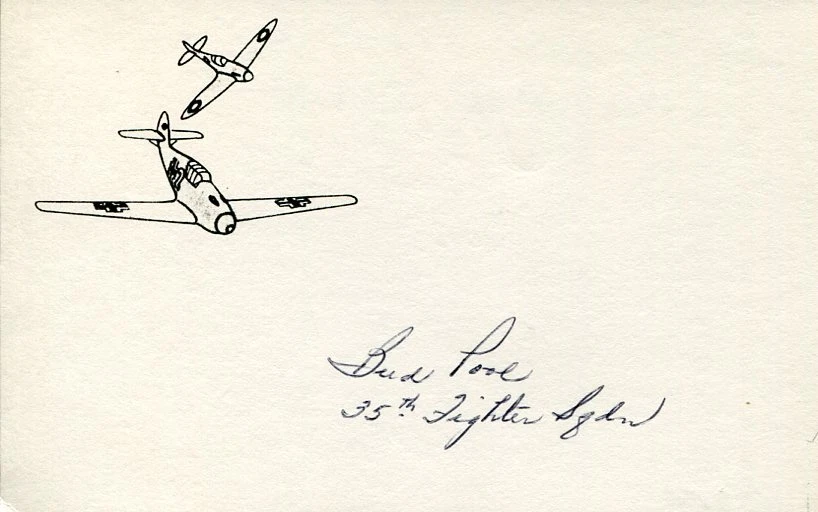 Bud Poole
35th Fighter Sqdn